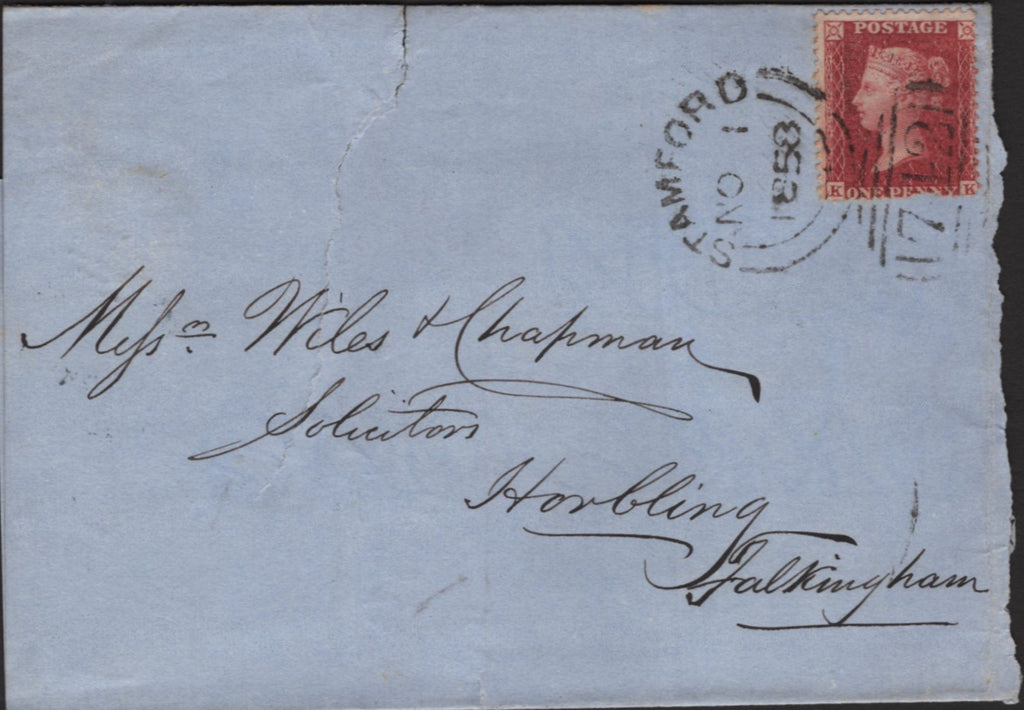 POSTAGE
K ONE PENNY K
STAMFORD
1
NO
1858
Mess.rs Wiles & Chapman
Solicitors
Horbling
Falkingham